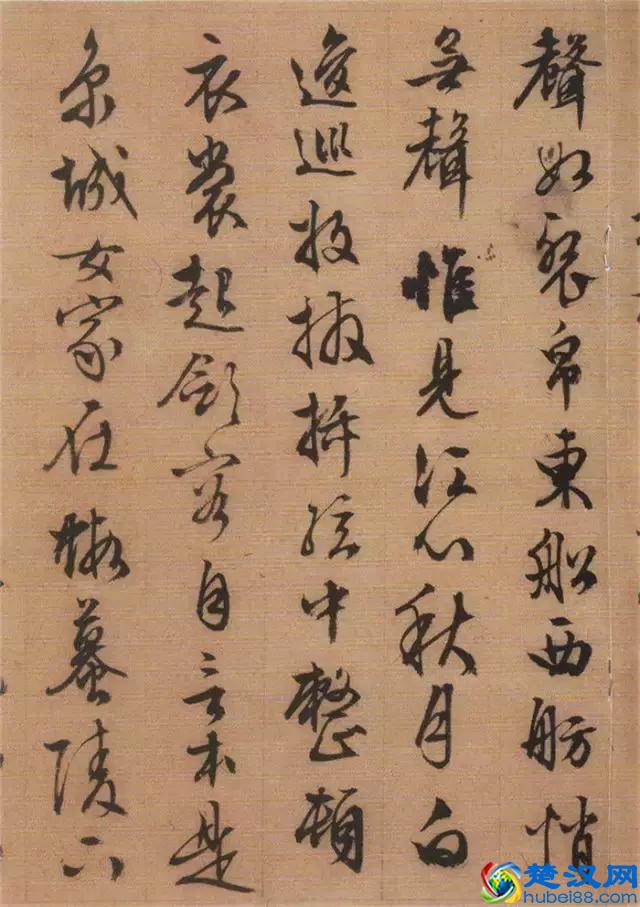 聲如裂帛東船西舫悄
無聲惟見江心秋月白
逡巡收撥插絃中整頓
衣裳起斂容自言本是
京城女家在蝦蟇陵下
楚汉网
hubei88.com